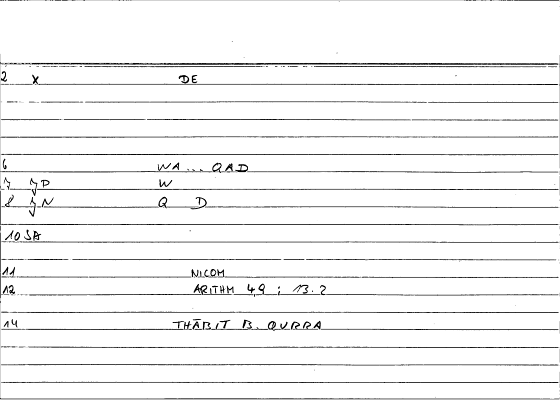 2 X DE
6 WA ... QAD
7 JP W
8 JN Q D
10 SA
11 NICOM
12 ARITHM 49 ; 13.2
14 THĀBIT B. QURRA